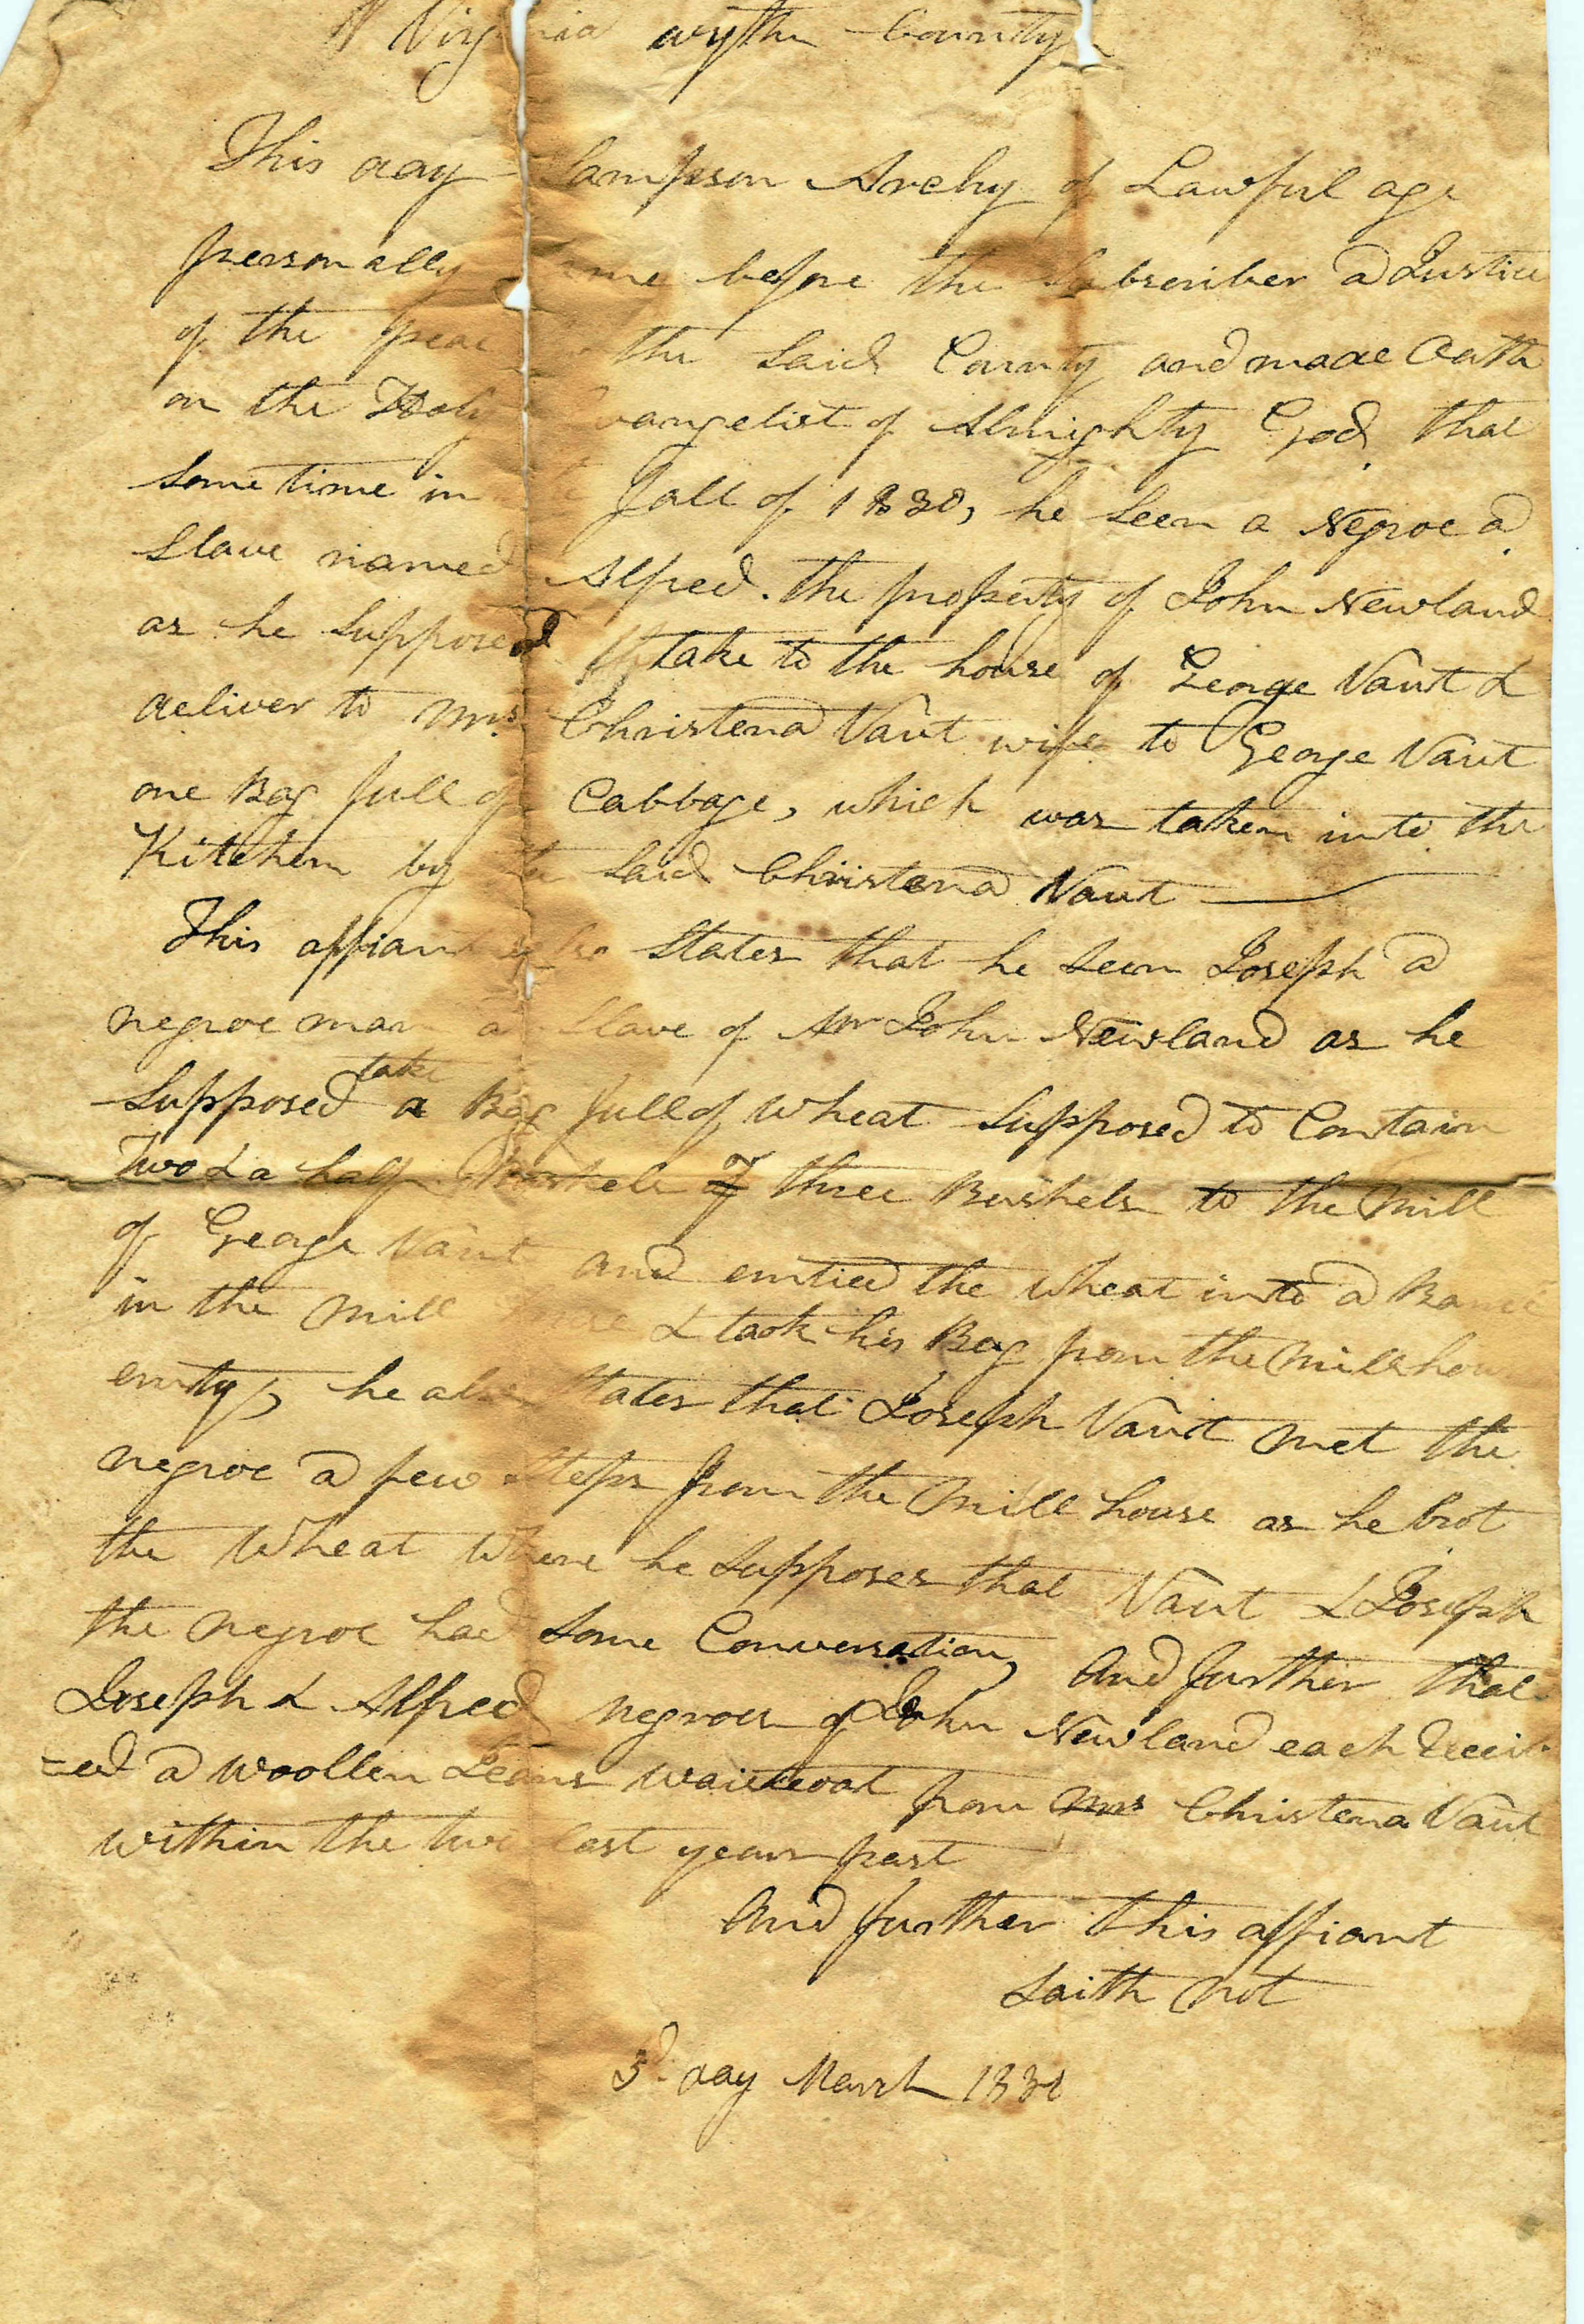 Virginia wythe County
This day Sampson Archy of Lawful age
personally came before the Subscriber a Justice
of the peac the Said County and made Oath
on the Holy Evangelist of Almighty God that
Some time in the fall of 1830, he Seen a Negroe a
Slave named Alfred. the property of John Newland
as he Supposed take to the house of George Vaut &
deliver to Mrs Christena Vaut wife to George Vaut
one Bag full of Cabbage, which was taken into the
Kitchen by the Said Christena Vaut
This affiant also States that he Seen Joseph a
negroe man a Slave of Mr John Newland as he
Supposed take a Bag full of Wheat Supposed to Contain
Two & a half Bushels or three Bushels to the Mill
of George Vaut and emtied the Wheat into a Barrel
in the Mill & took his Bag from the Mill hous
emty, he also States that Joseph Vaut Met the
negroe a few Steps from the Mill house as he brot
the Wheat Where he Supposes that Vaut & Joseph
the Negroe had Some Conversation, And further that
Joseph & Alfred negroes of John Newland each Receiv
=ed a Woollen Jeans Waistcoat from Mrs Christena Vaut
within the two last years past
And further this affiant
Saith Not
3d. day March 1831